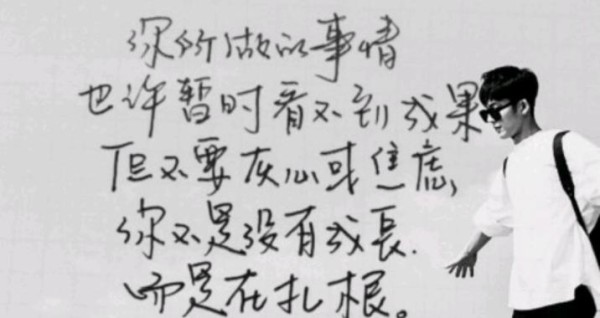 你所做的事情
也许暂时看不到成果
但不要灰心或焦虑,
你不是没有成長.
而是在扎根。